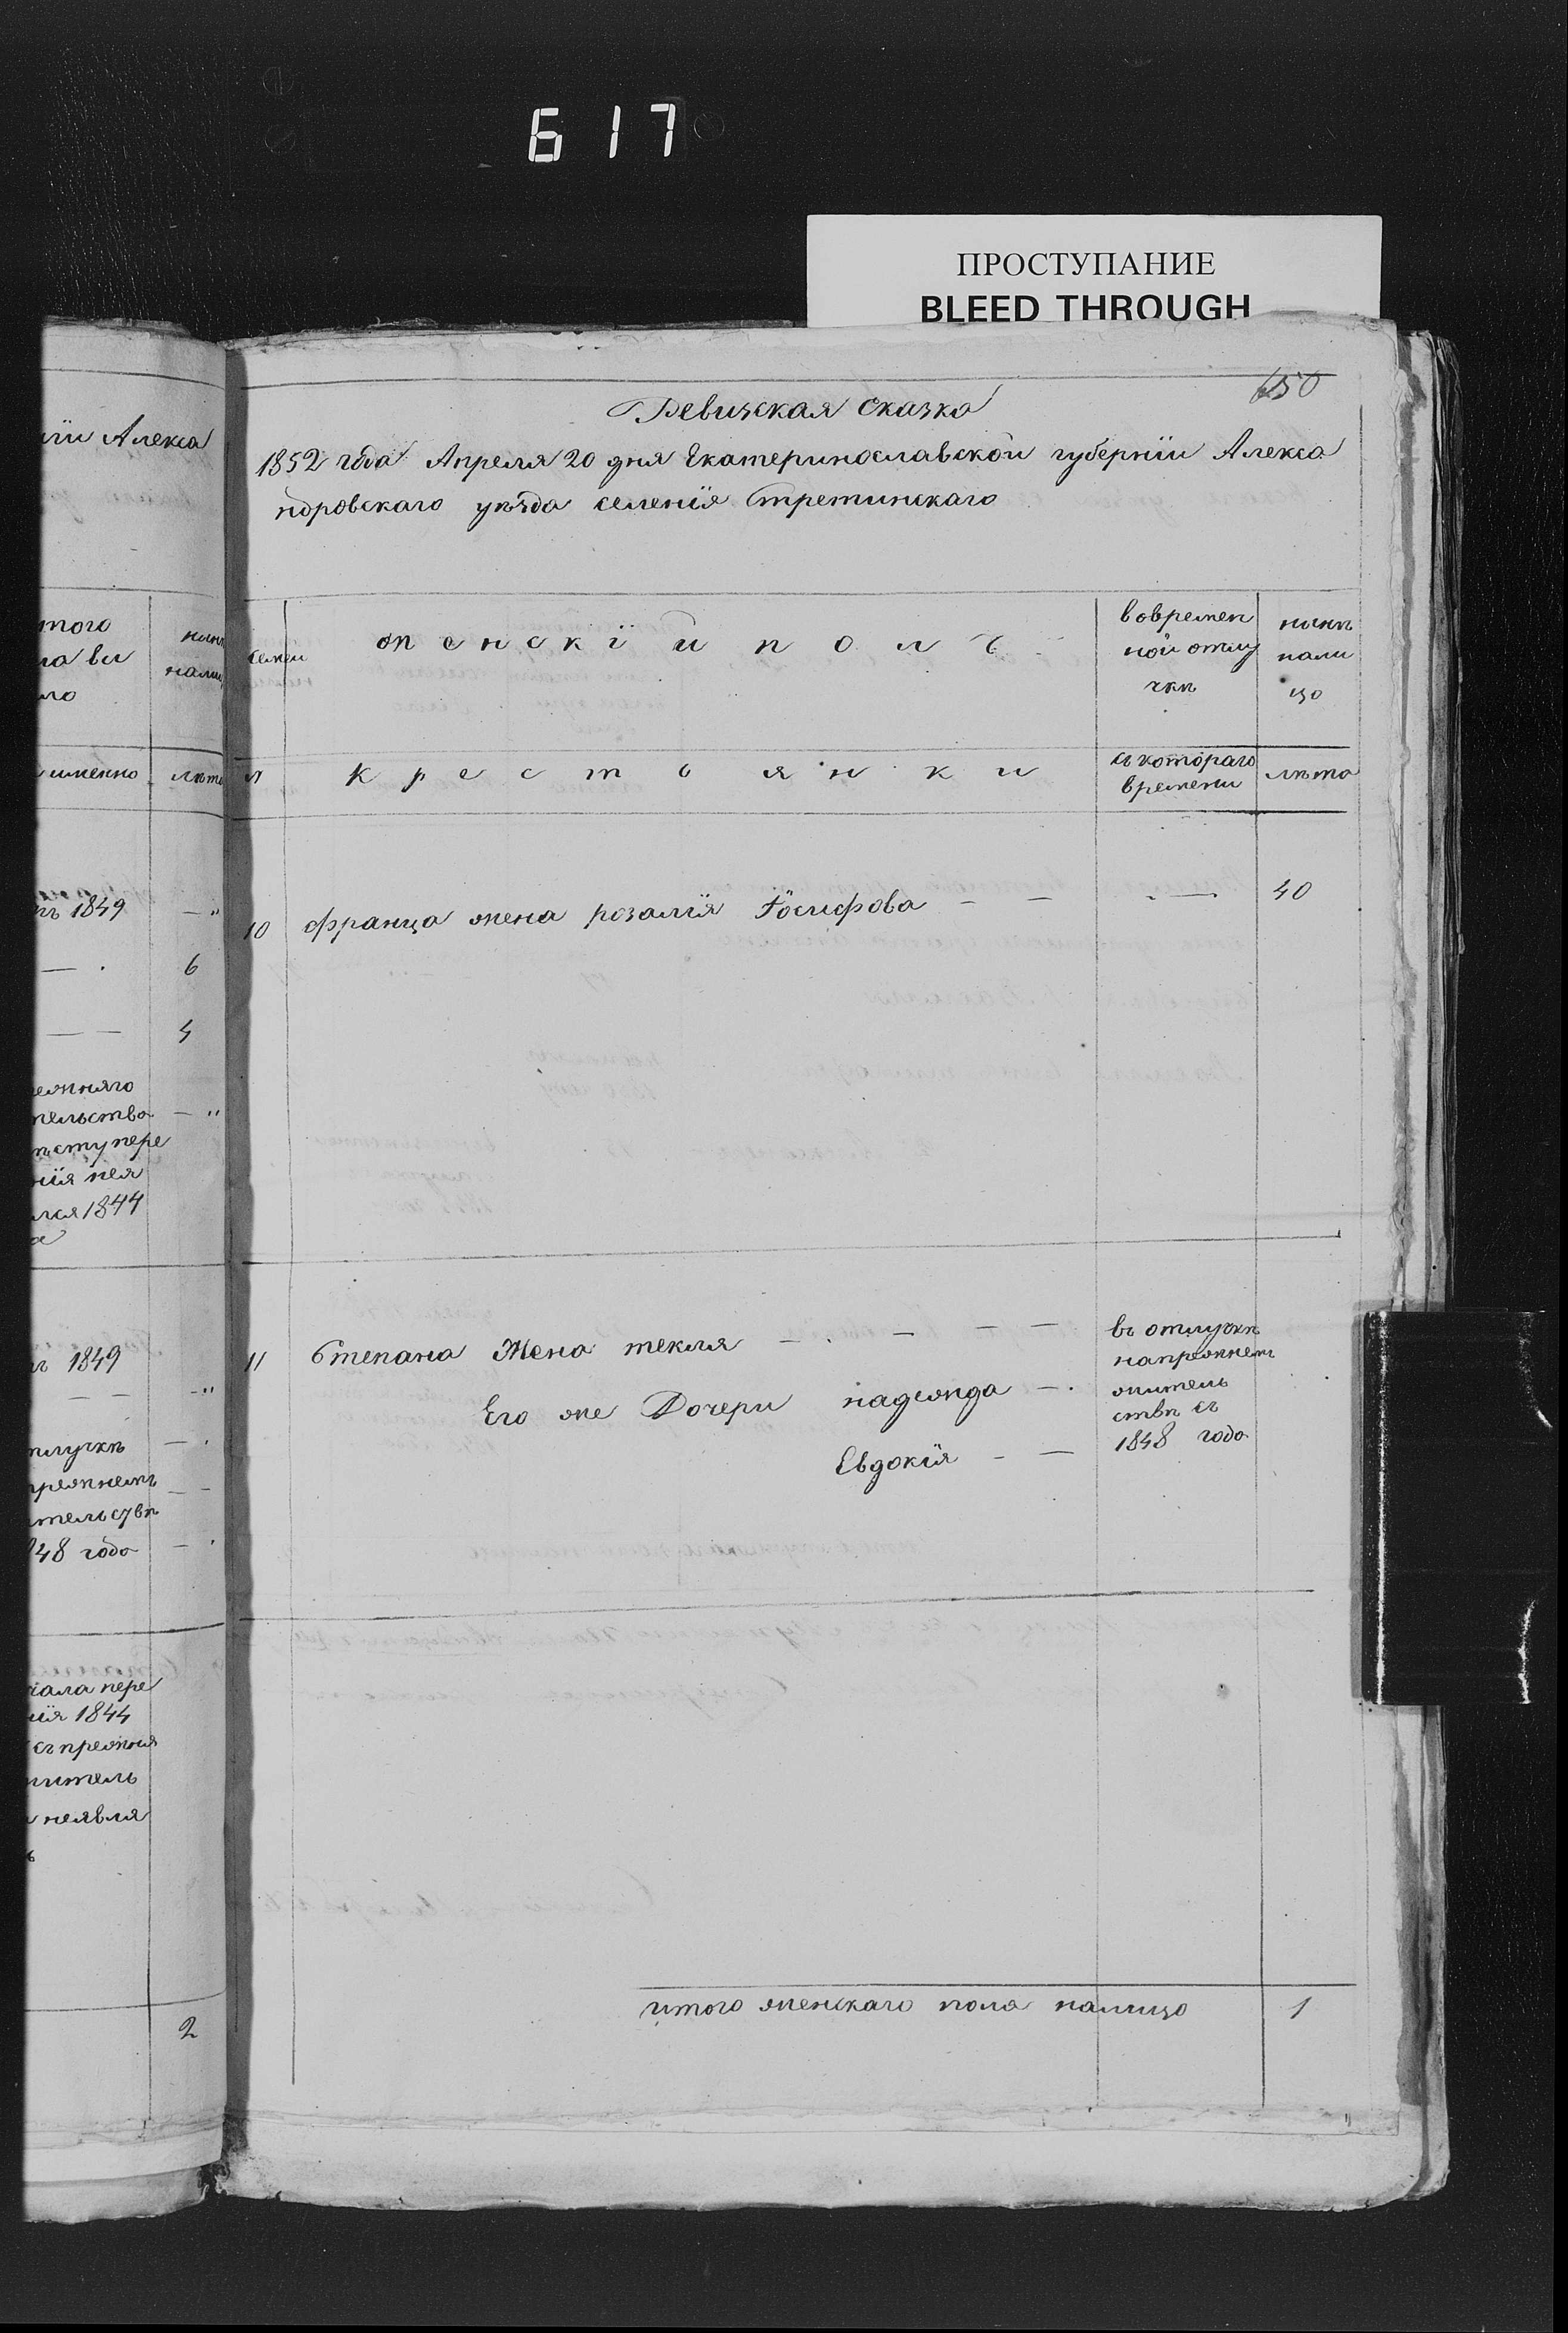 617
ПРОСТУПАНИЕ
BLEED THROUGH
650
Ревизская Сказка
1852 года Апреля 20 дня Екатеринославской губернїи Алекса
ндровскаго уѣзда селенїя Стретинскаго
семеи
женскїй полъ
вовремен
ной отлу
чкѣ
нынѣ
нали
цо
№
крестьянки
съкотораго
времени
лѣта
10 Франца жена розалїя Іосифова — — — 40
11 Степана Жена текля — — — —
Его же Дочери надежда —
Евдокїя — —
въ отлучкѣ
напрежнемъ
житель
ствѣ съ
1848 года
итого женскаго пола налицо 1
їи Алекса
того
ла вы
ло
нынѣ
налиц
именно
лѣта
1849 — "
— 6
— — 4
режняго
тельства — "
ѣсту пере
нїя нея
лся 1844
а
1849
— — — "
тлучкѣ —
прежнемъ — —
тельствѣ
48 года —
чала пере
нїя 1844
съпрежня
житель
неявля
ь
2